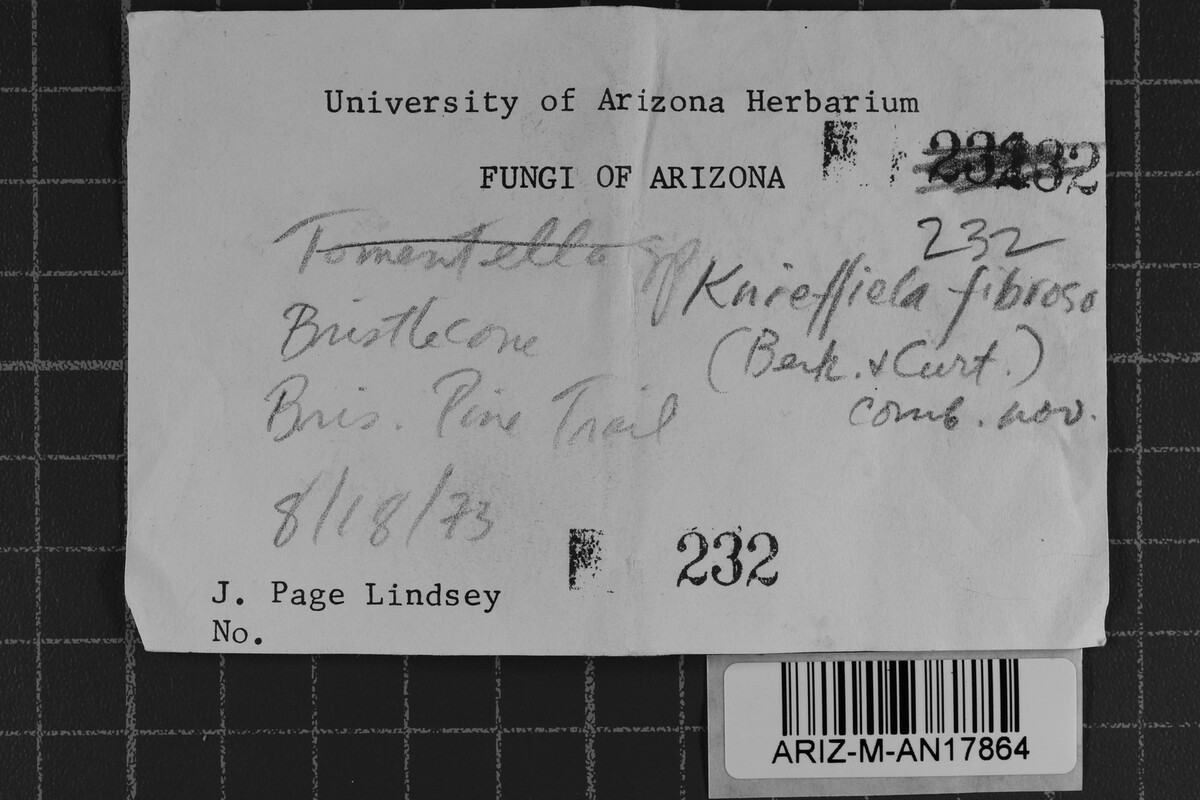 University of Arizona Herbarium
FUNGI OF ARIZONA
232
Tomentella sp
Knieffiela fibrosa
(Berk. & Curt.)
comb. nov.
Bristlecone
Bris. Pine Trail
8/18/73
232
J. Page Lindsey
No.
ARIZ-M-AN17864